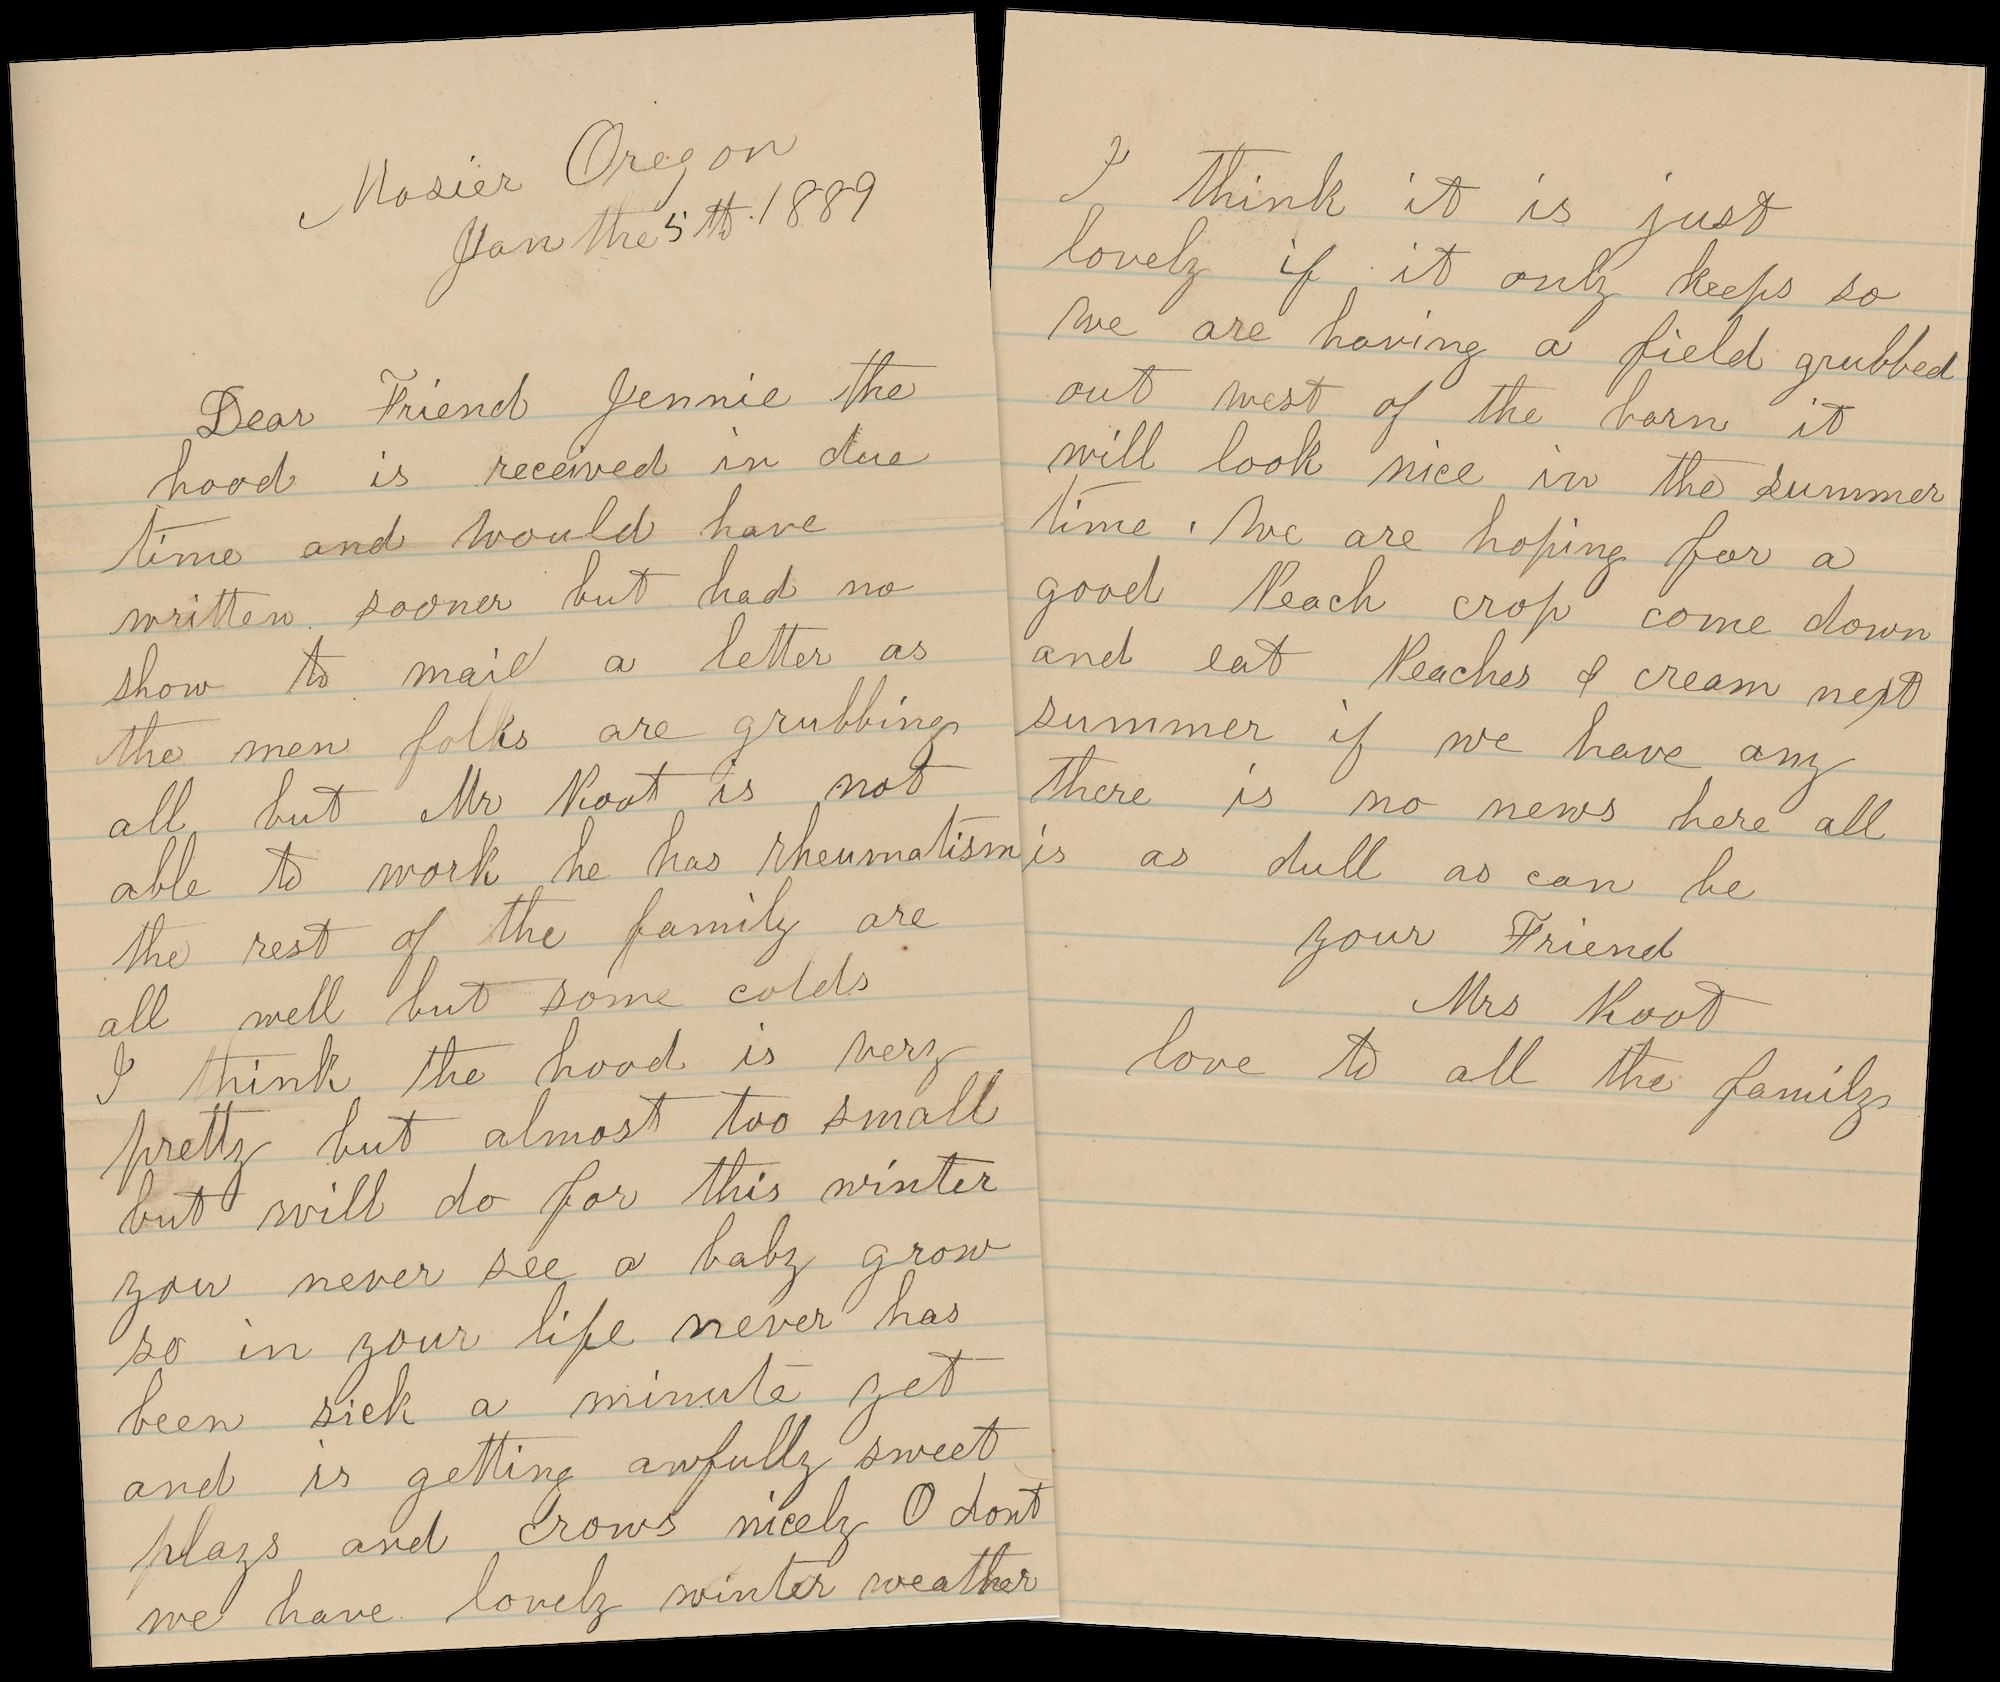 Mosier Oregon
Jan the 5th. 1889
Dear Friend Jennie the
hood is received in due
time and would have
written sooner but had no
show to mail a letter as
the men folks are grubbing
all but Mr Root is not
able to work he has rheumatism
the rest of the family are
all well but some colds
I think the hood is very
pretty but almost too small
but will do for this winter
you never see a baby grow
so in your life never has
been sick a minute yet
and is getting awfully sweet
plays and crows nicely O dont
we have lovely winter weather
I think it is just
lovely if it only keeps so
we are having a field grubbed
out west of the barn it
will look nice in the summer
time. We are hoping for a
good Peach crop come down
and eat Peaches & cream next
summer if we have any
there is no news here all
is as dull as can be
your Friend
Mrs Root
love to all the family